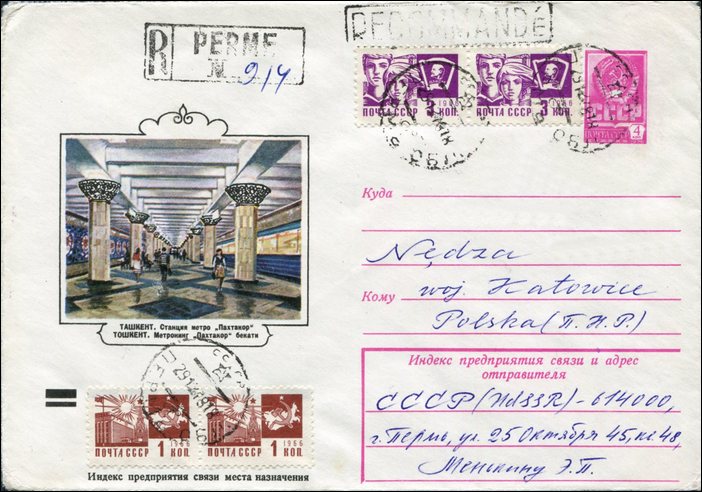 R PERME
N 914
RECOMMANDÉ
1966
ПОЧТА СССР 3 КОП.
1966
ПОЧТА СССР 3 КОП.
СССР
ПОЧТА 4
Куда
Nędza
woj. Katowice
Кому
Polska (П.Н.Р.)
ТАШКЕНТ. Станция метро „Пахтакор"
ТОШКЕНТ. Метронинг „Пахтакор" бекати
Индекс предприятия связи и адрес
отправителя
СССР (UdSSR) - 614000,
г. Пермь, ул. 25 Октября 45, кв. 48,
Э.П.
1966
ПОЧТА СССР 1 КОП.
1966
ПОЧТА СССР 1 КОП.
Индекс предприятия связи места назначения